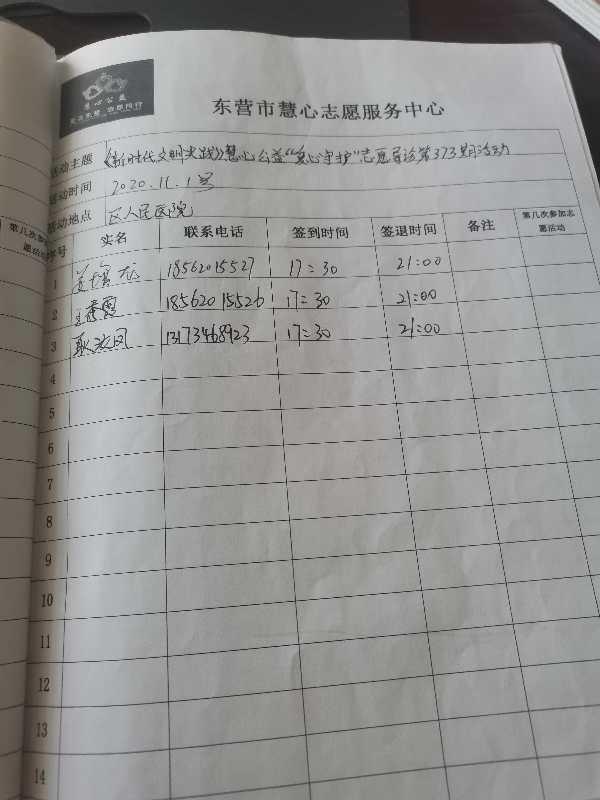 慧心公益
东营市慧心志愿服务中心
活动主题 《新时代文明实践》慧心公益“爱心守护”志愿导诊第373期活动
活动时间 2020.11.1号
活动地点 区人民医院
第几次参加志愿活动
序号 实名 联系电话 签到时间 签退时间 备注 第几次参加志愿活动
1 18562015527 17:30 21:00
2 18562015526 17:30 21:00
3 13173468923 17:30 21:00
4
5
6
7
8
9
10
11
12
13
14